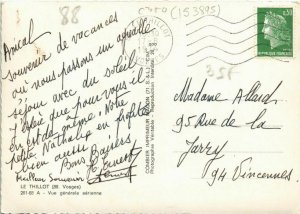 88
(153895)
0,30
35F
Amical
souvenir de vacances
où nous passons un agréable
séjour avec du soleil
J'espère que pour vous il
en est de même. Notre
petite Nathalie en profite
bien aussi.
Bons Baisers
Meilleur Souvenir
LE THILLOT (88. Vosges)
261-68 A - Vue générale aérienne
Madame Allard
95 Rue de la
Jarry
94 Vincennes